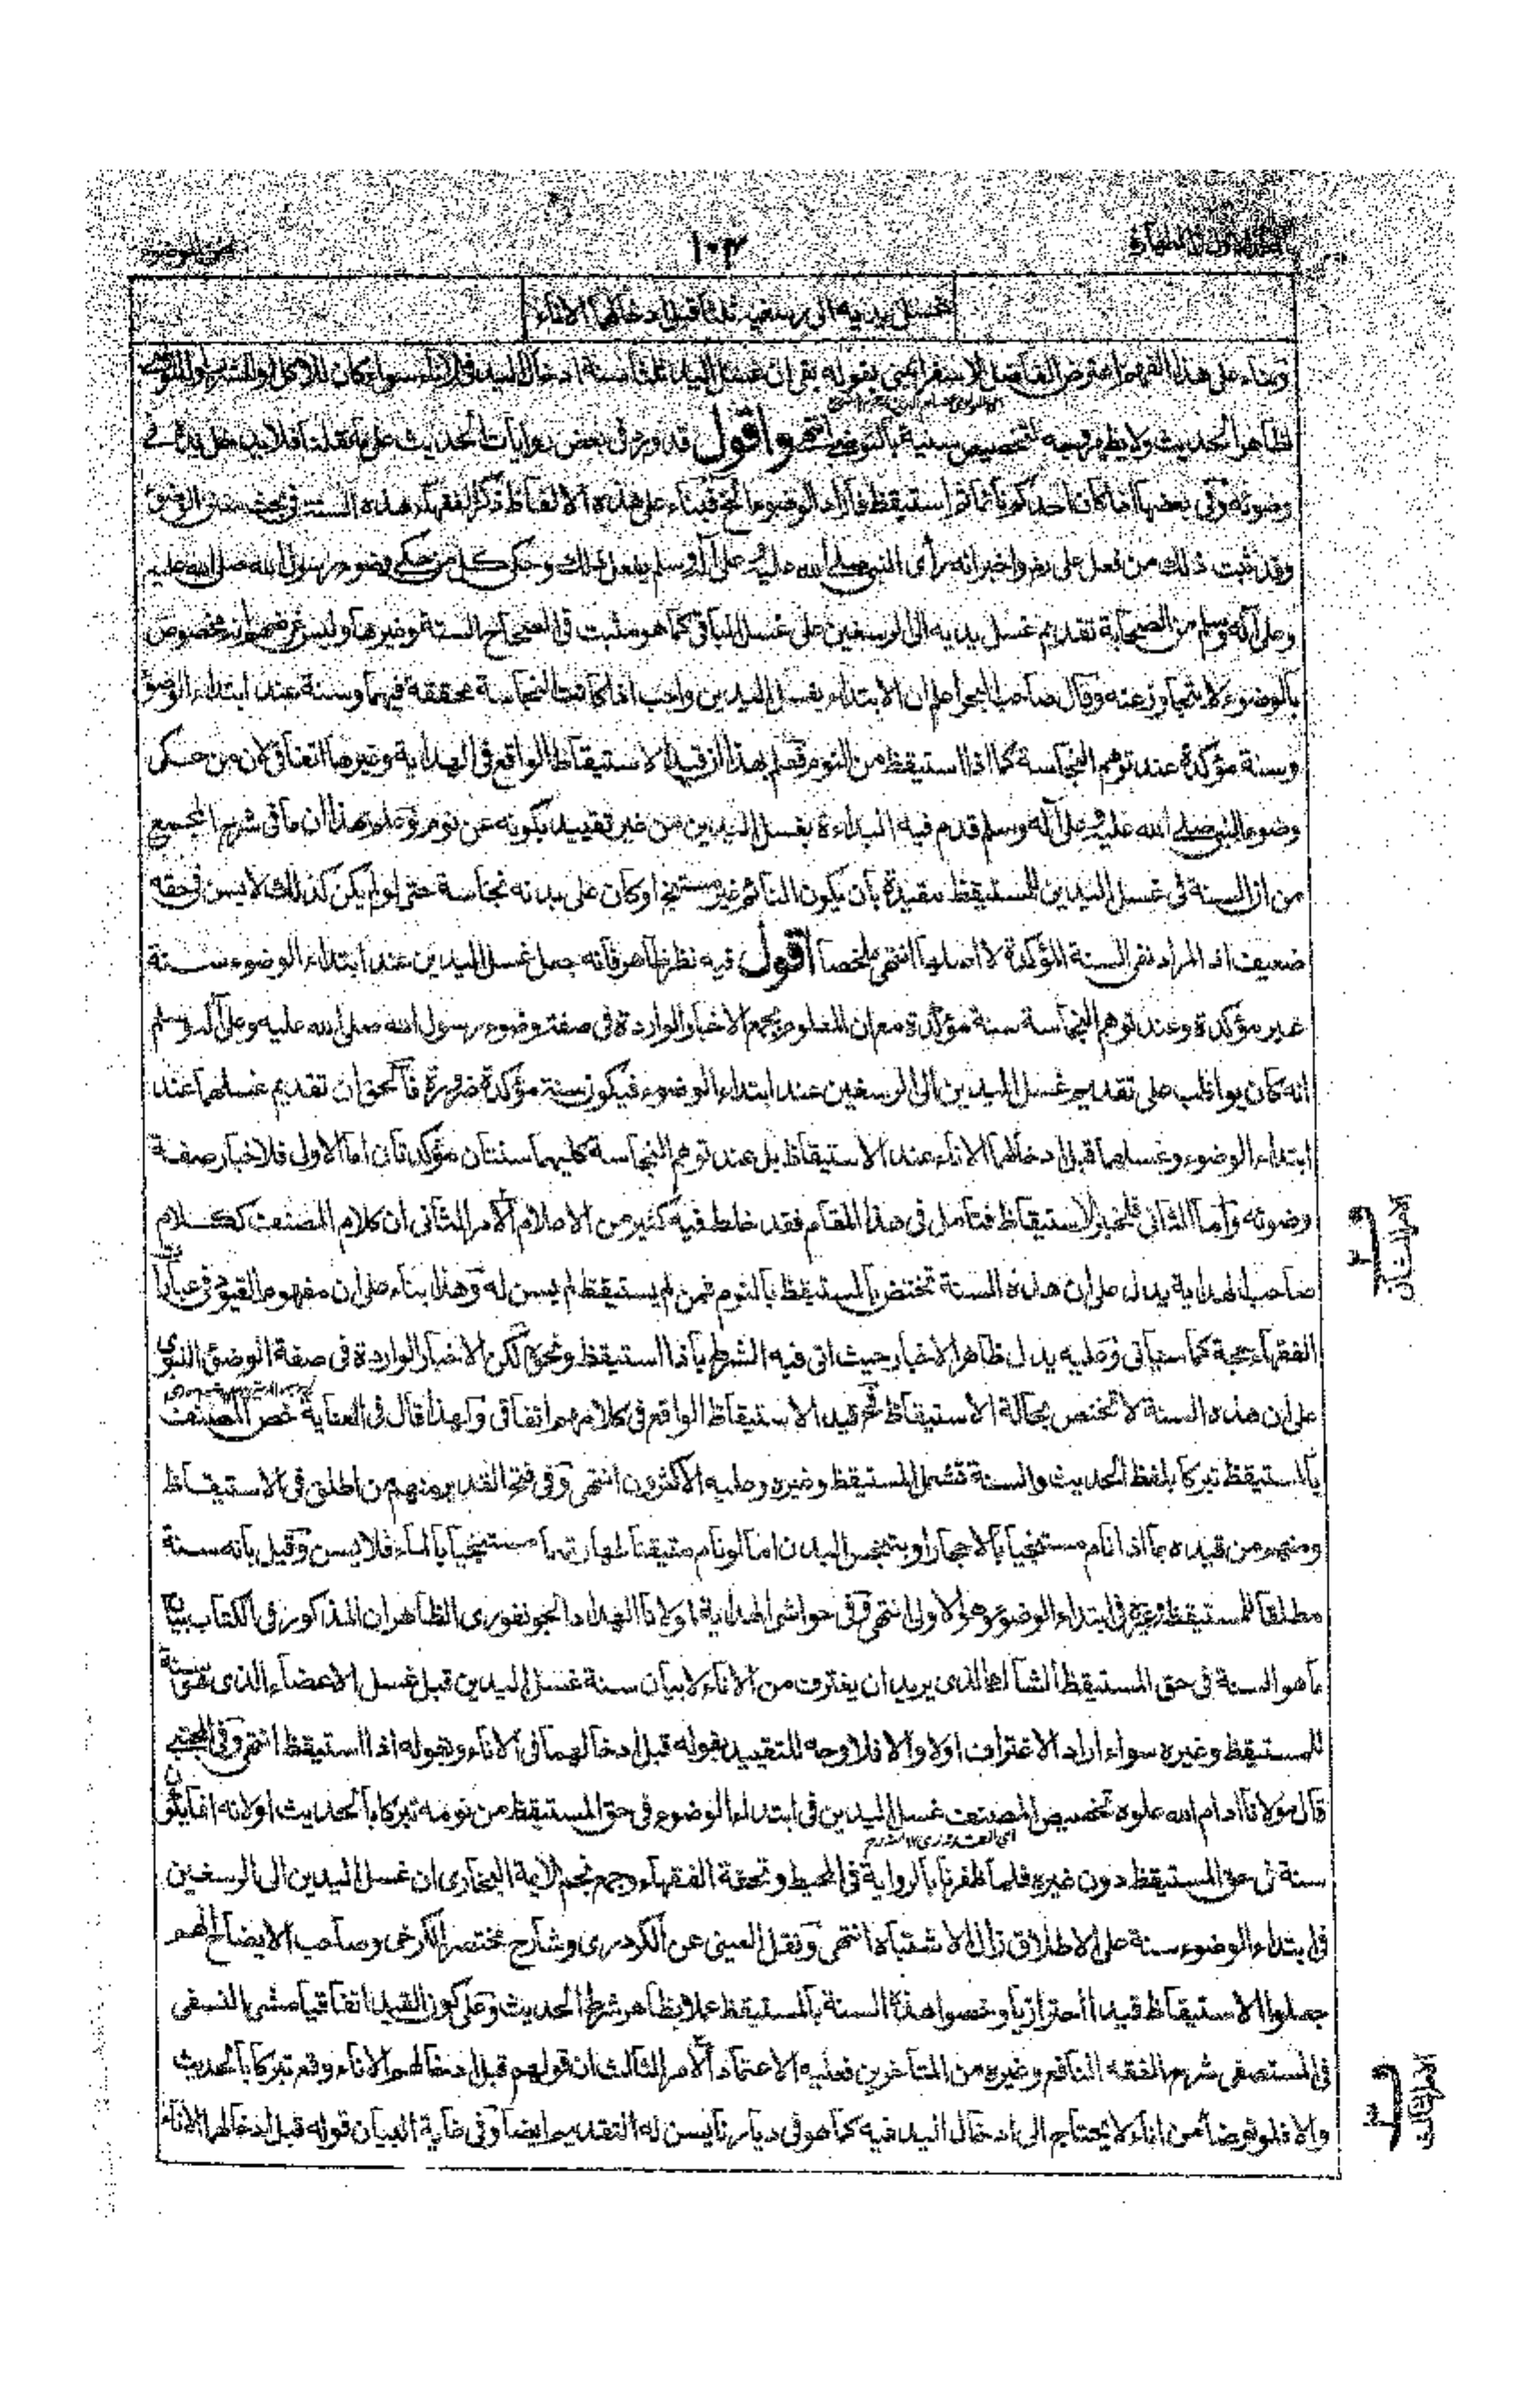 ١٠٣
غسل يديه الى رسغيه ثلثا قبل ادخالهما الاناء
وبناء على هذا الفهم اعترض الفاضل الاسفرائيني بقوله بقى ان غسل اليد ثلثا سنة ادخال اليد فى الاناء سواء كان للاكل او الشرب او التوضى
لظاهر الحديث ولا يظهر وجه لتخصيص سنية بالتوضى انتهى واقول قد ورد فى بعض روايات الحديث على ما نقلنا فلا يدخل يده فى
وضوئه وفى بعضها اذا كان احدكم نائما ثم استيقظ فاراد الوضوء الخ فبناء على هذه الالفاظ ذكر الفقهاء هذه السنة فى بحث سنن الوضوء
وقد ثبت ذلك من فعل على رض واخبر انه رأى النبى صلى الله عليه وعلى آله وسلم يفعل ذلك وحكى كل من حكى وضوء رسول الله صلى الله عليه
وعلى آله وسلم من الصحابة تقديم غسل يديه الى الرسغين على غسل الباقى كما هو مثبت فى الصحاح الستة وغيرها وليس غرضهم انه مخصوص
بالوضوء لا يتجاوز عنه وقال صاحب البحر اعلم ان الابتداء بغسل اليدين واجب اذا كانت النجاسة محققة فيهما وسنة عند ابتداء الوضوء
وسنة مؤكدة عند توهم النجاسة كما اذا استيقظ من النوم فعلم بهذا ان قيد الاستيقاظ الواقع فى الهداية وغيرها اتفاقى لان من حكى
وضوء النبى صلى الله عليه وعلى آله وسلم قدم فيه البداءة بغسل اليدين من غير تقييد بكونه عن نوم وعلم بهذا ان ما فى شرح المجمع
من ان السنة فى غسل اليدين للمستيقظ مقيدة بان يكون النائم غير مستنج او كان على بدنه نجاسة حتى لو لم يكن كذلك لا يسن فى حقه
ضعيف اذ المراد نفى السنة المؤكدة لا اصلها انتهى ملخصا اقول فيه نظر ظاهر فانه جعل غسل اليدين عند ابتداء الوضوء سنة
غير مؤكدة وعند توهم النجاسة سنة مؤكدة مع ان المعلوم بجمع الاخبار الواردة فى صفة وضوء رسول الله صلى الله عليه وعلى آله وسلم
انه كان يواظب على تقديم غسل اليدين الى الرسغين عند ابتداء الوضوء فيكون سنة مؤكدة ضرورة فالحق ان تقديم غسلهما عند
ابتداء الوضوء وغسلهما قبل ادخالهما الاناء عند الاستيقاظ بل عند توهم النجاسة كليهما سنتان مؤكدتان اما الاول فلاخبار صفة
وضوئه واما الثانى فلخبر الاستيقاظ فتامل فى هذا المقام فقد خلط فيه كثير من الاعلام الامر الثانى ان كلام المصنف ككلام
صاحب الهداية يدل على ان هذه السنة تختص بالمستيقظ بالنوم فمن لم يستيقظ لم يسن له وهذا بناء على ان مفهوم القيود فى عبارات
الفقهاء حجة كما سياتى وعليه يدل ظاهر الاخبار حيث اتى فيه الشرط باذا استيقظ ونحوه لكن الاخبار الواردة فى صفة الوضوء النبوى
على ان هذه السنة لا تختص بحالة الاستيقاظ فح قيد الاستيقاظ الواقع فى كلامهم اتفاقى ولهذا قال فى العناية خص المصنف
بالمستيقظ تبركا بلفظ الحديث والسنة تشمل المستيقظ وغيره وعليه الاكثرون انتهى وفى فتح القدير منهم من اطلق فى الاستيقاظ
ومنهم من قيده بما اذا نام مستنجيا بالاحجار او بتنجس البدن اما لو نام متيقنا طهارتهما مستنجيا بالماء فلا يسن وقيل بانه سنة
مطلقا للمستيقظ وغيره فى ابتداء الوضوء وهو الاولى انتهى وفى حواشى الهداية لمولانا الهداد الجونفورى الظاهر ان المذكور فى الكتاب بيان
ما هو السنة فى حق المستيقظ الشاك الذى يريد ان يغترف من الاناء لا بيان سنة غسل اليدين قبل غسل الاعضاء الذى هى سنة
للمستيقظ وغيره سواء اراد الاغتراف اولا والا فلا وجه للتقييد بقوله قبل ادخالهما فى الاناء وبقوله اذا استيقظ انتهى وفى المجتبى
قال مولانا ادام الله علوه تخصيص المصنف غسل اليدين فى ابتداء الوضوء فى حق المستيقظ من نومه تبركا بالحديث او لانه انما يكون
سنة فى حق المستيقظ دون غيره فلما ظفرنا بالرواية فى المحيط وتحفة الفقهاء وجمع نجم الائمة البخارى ان غسل اليدين الى الرسغين
فى ابتداء الوضوء سنة على الاطلاق زال الاشتباه انتهى ونقل العينى عن الكردرى وشارح مختصر الكرخى وصاحب الايضاح انهم
جعلوا الاستيقاظ قيدا احترازيا وخصوا هذه السنة بالمستيقظ عملا بظاهر شرط الحديث وعلى كون القيد اتفاقيا مشى النسفى
فى المستصفى شرح الفقه النافع وغيره من المتأخرين فعليه الاعتماد الامر الثالث ان قولهم قبل ادخالهم الاناء وقع تبركا بالحديث
والا فلو توضأ من اناء لا يحتاج الى ادخال اليد فيه كما هو فى ديارنا يسن له التقديم ايضا وفى غاية البيان قوله قبل ادخالهما الاناء
الامر الثانى
الامر الثالث